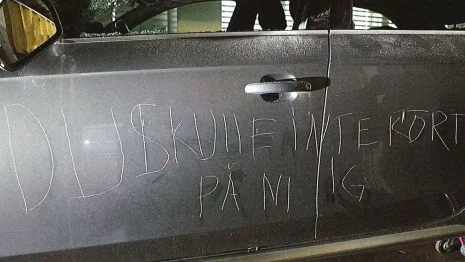 DU SKULLE INTE KÖRT
PÅ NI IG